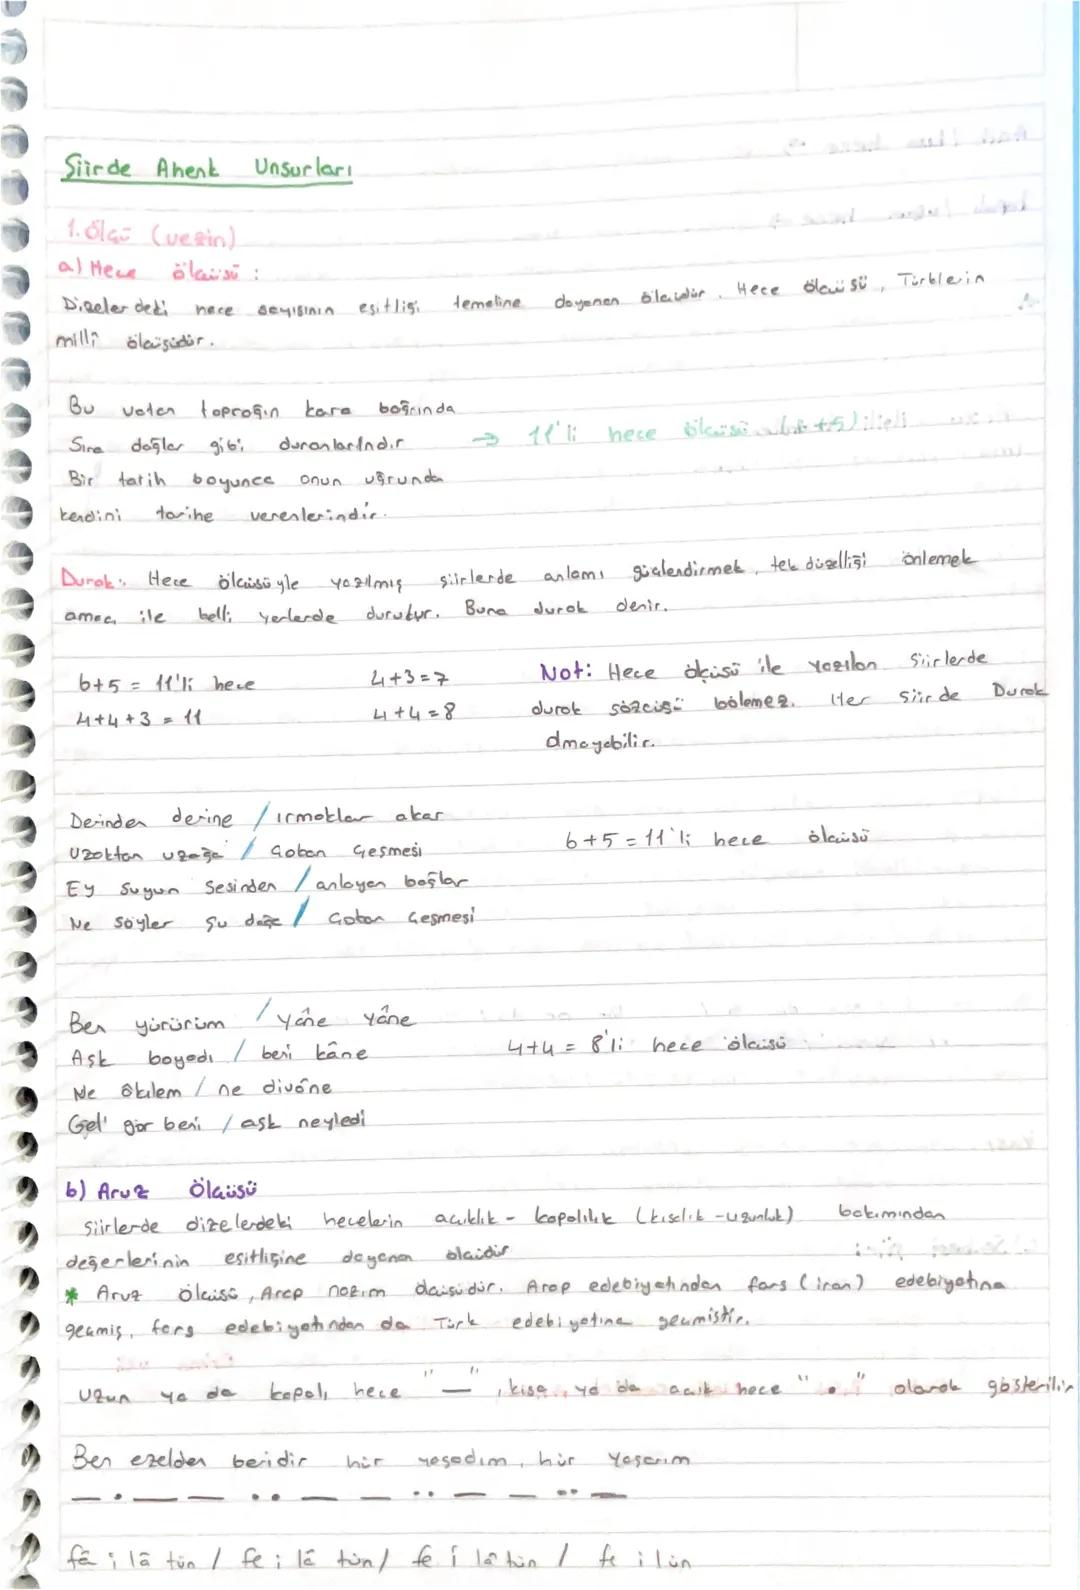 Şiirde Ahenk Unsurları
1. Ölçü (vezin)
a) Hece ölçüsü :
Dizelerdeki hece sayısının eşitliği temeline dayanan ölçüdür. Hece ölçüsü, Türklerin
millî ölçüsüdür.
Bu vatan toprağın kara bağrında
Sıra dağlar gibi duranlarındır → 11'li hece ölçüsü (6+5)
Bir tarih boyunca onun uğrunda
kendini tarihe verenlerindir.
Durak: Hece ölçüsüyle yazılmış şiirlerde anlamı güçlendirmek, tek düzelliği önlemek
amacı ile belli yerlerde durulur. Buna durak denir.
6+5 = 11'li hece 4+3=7 Not: Hece ölçüsü ile yazılan şiirlerde
4+4+3 = 11 4+4=8 durak sözcüğü bölemez. Her şiirde Durak
olmayabilir.
Derinden derine / ırmaklar akar
Uzaktan uzağa / Çoban Çeşmesi 6+5=11'li hece ölçüsü
Ey suyun sesinden / anlayan bağlar
Ne söyler şu dağa / Çoban Çeşmesi
Ben yürürüm / yâne yâne
Aşk boyadı / beni kâne 4+4 = 8'li hece ölçüsü
Ne âkilem / ne divâne
Gel' gör beni / aşk neyledi
b) Aruz Ölçüsü
Şiirlerde dizelerdeki hecelerin açıklık - kapalılık (kısalık-uzunluk) bakımından
değerlerinin eşitliğine dayanan ölçüdür
* Aruz ölçüsü, Arap nazım ölçüsüdür. Arap edebiyatından fars (iran) edebiyatına
geçmiş, fars edebiyatından da Türk edebiyatına geçmiştir.
Uzun ya da kapalı hece "—", kısa ya da açık hece "." olarak gösterilir
Ben ezelden beridir hür yaşadım, hür yaşarım
— . — — . . — — . . — — . . —
fâ i lâ tün / fe i lâ tün / fe i lâ tün / fe i lün